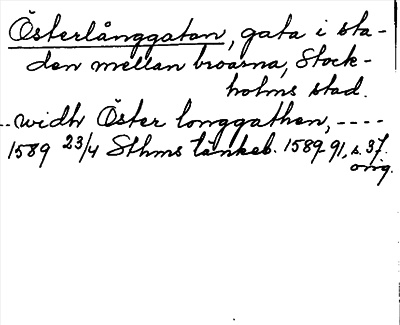 Österlånggatan, gata i sta-
den mellan broarna, Stock-
holms stad.
..widh Öster longgathen, ----
1589 23/4 Sthms tänkeb. 1589-91, s. 37.
orig.